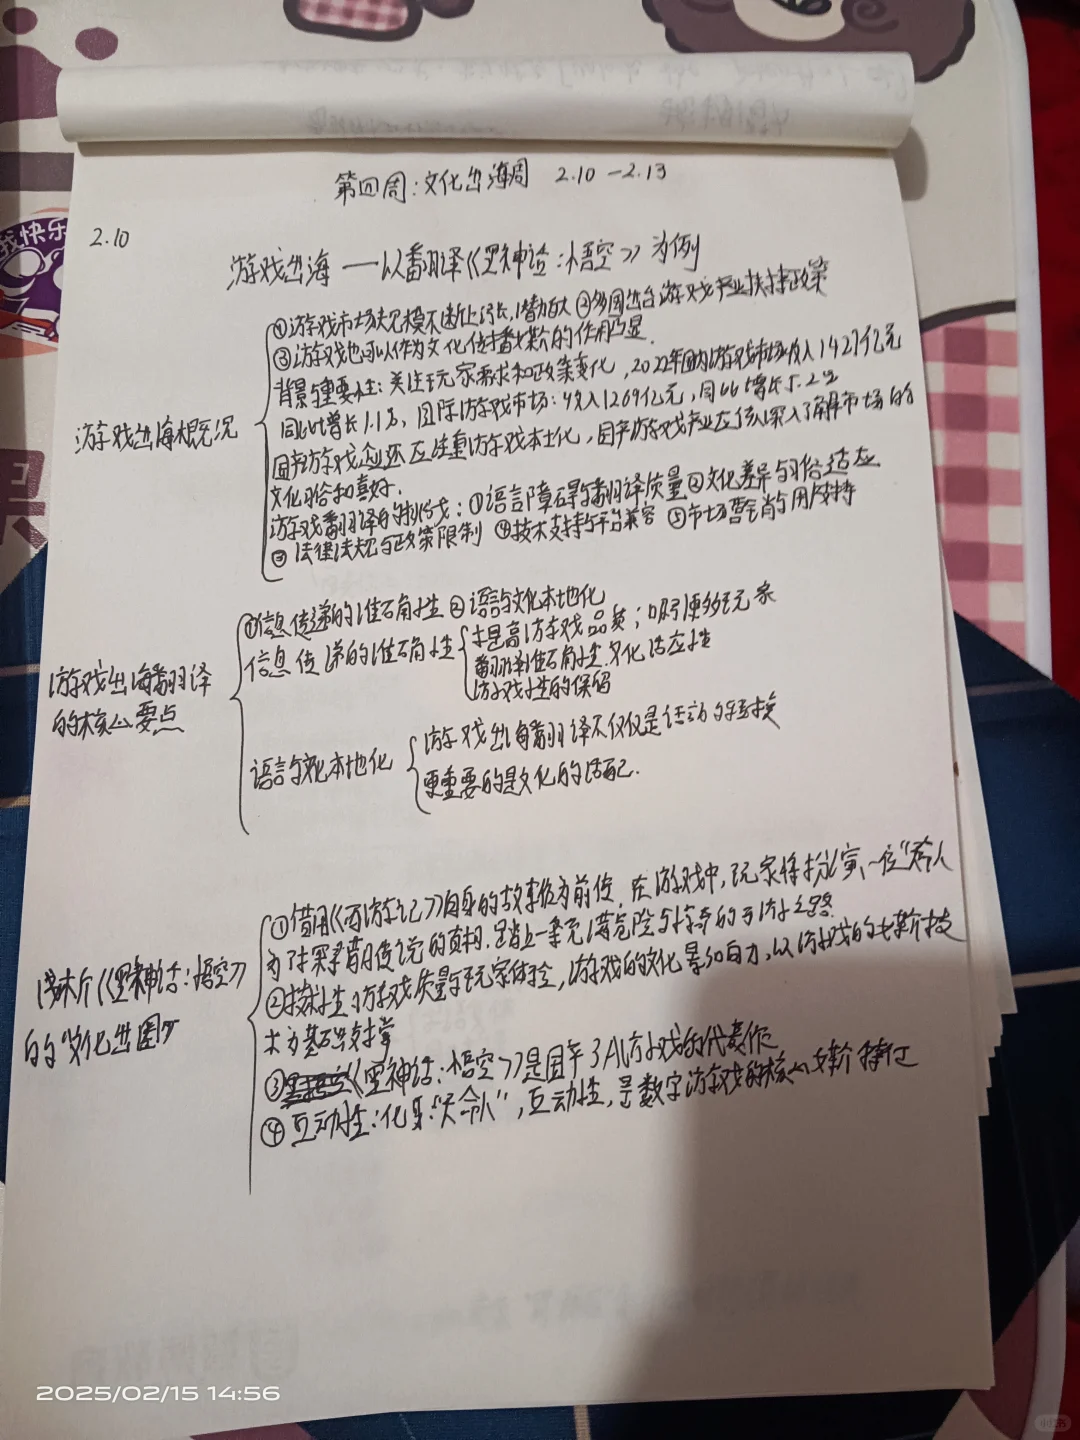 第四周：文化出海周 2.10 —2.13
2.10
游戏出海——以翻译《黑神话：悟空》为例
游戏出海概况
①游戏市场规模不断上涨，潜力巨大 ②多国出台游戏产业扶持政策
③游戏也可以作为文化传播媒介的作用凸显.
背景与重要性：关注玩家需求和政策变化，2022年国内游戏市场收入1427亿元
同比增长1.1%，国际游戏市场：收入1269亿元，同比增长5.2%
国产游戏企业还应注重游戏本土化，国产游戏产业应该深入了解市场的
文化习俗和喜好.
游戏翻译的挑战：①语言障碍与翻译质量②文化差异与习俗适应
③ 法律法规与政策限制 ④技术支持与平台兼容 ⑤市场营销与用户支持
游戏出海翻译
的核心要点
①信息传递的准确性 ②语言与文化本地化
信息传递的准确性
提高游戏品质；吸引更多玩家
翻译准确性.文化适应性
游戏性的保留
语言与文化本地化
游戏出海翻译不仅仅是语言的转换
更重要的是文化的适配.
浅析《黑神话：悟空》
的"文化出圈"
①借用《西游记》自身的故事作为前传，在游戏中，玩家将扮演一位"天命人
为了探寻昔日传说的真相，踏上一条充满危险与惊奇的西游之路
②技术性：游戏质量与玩家体验，游戏的文化影响力，以游戏的媒介技
术为基础支撑
③《黑神话：悟空》是国产3A游戏的代表作
④ 互动性：化身"天命人"，互动性，是数字游戏的核心媒介特征
我快乐
果
2025/02/15 14:56